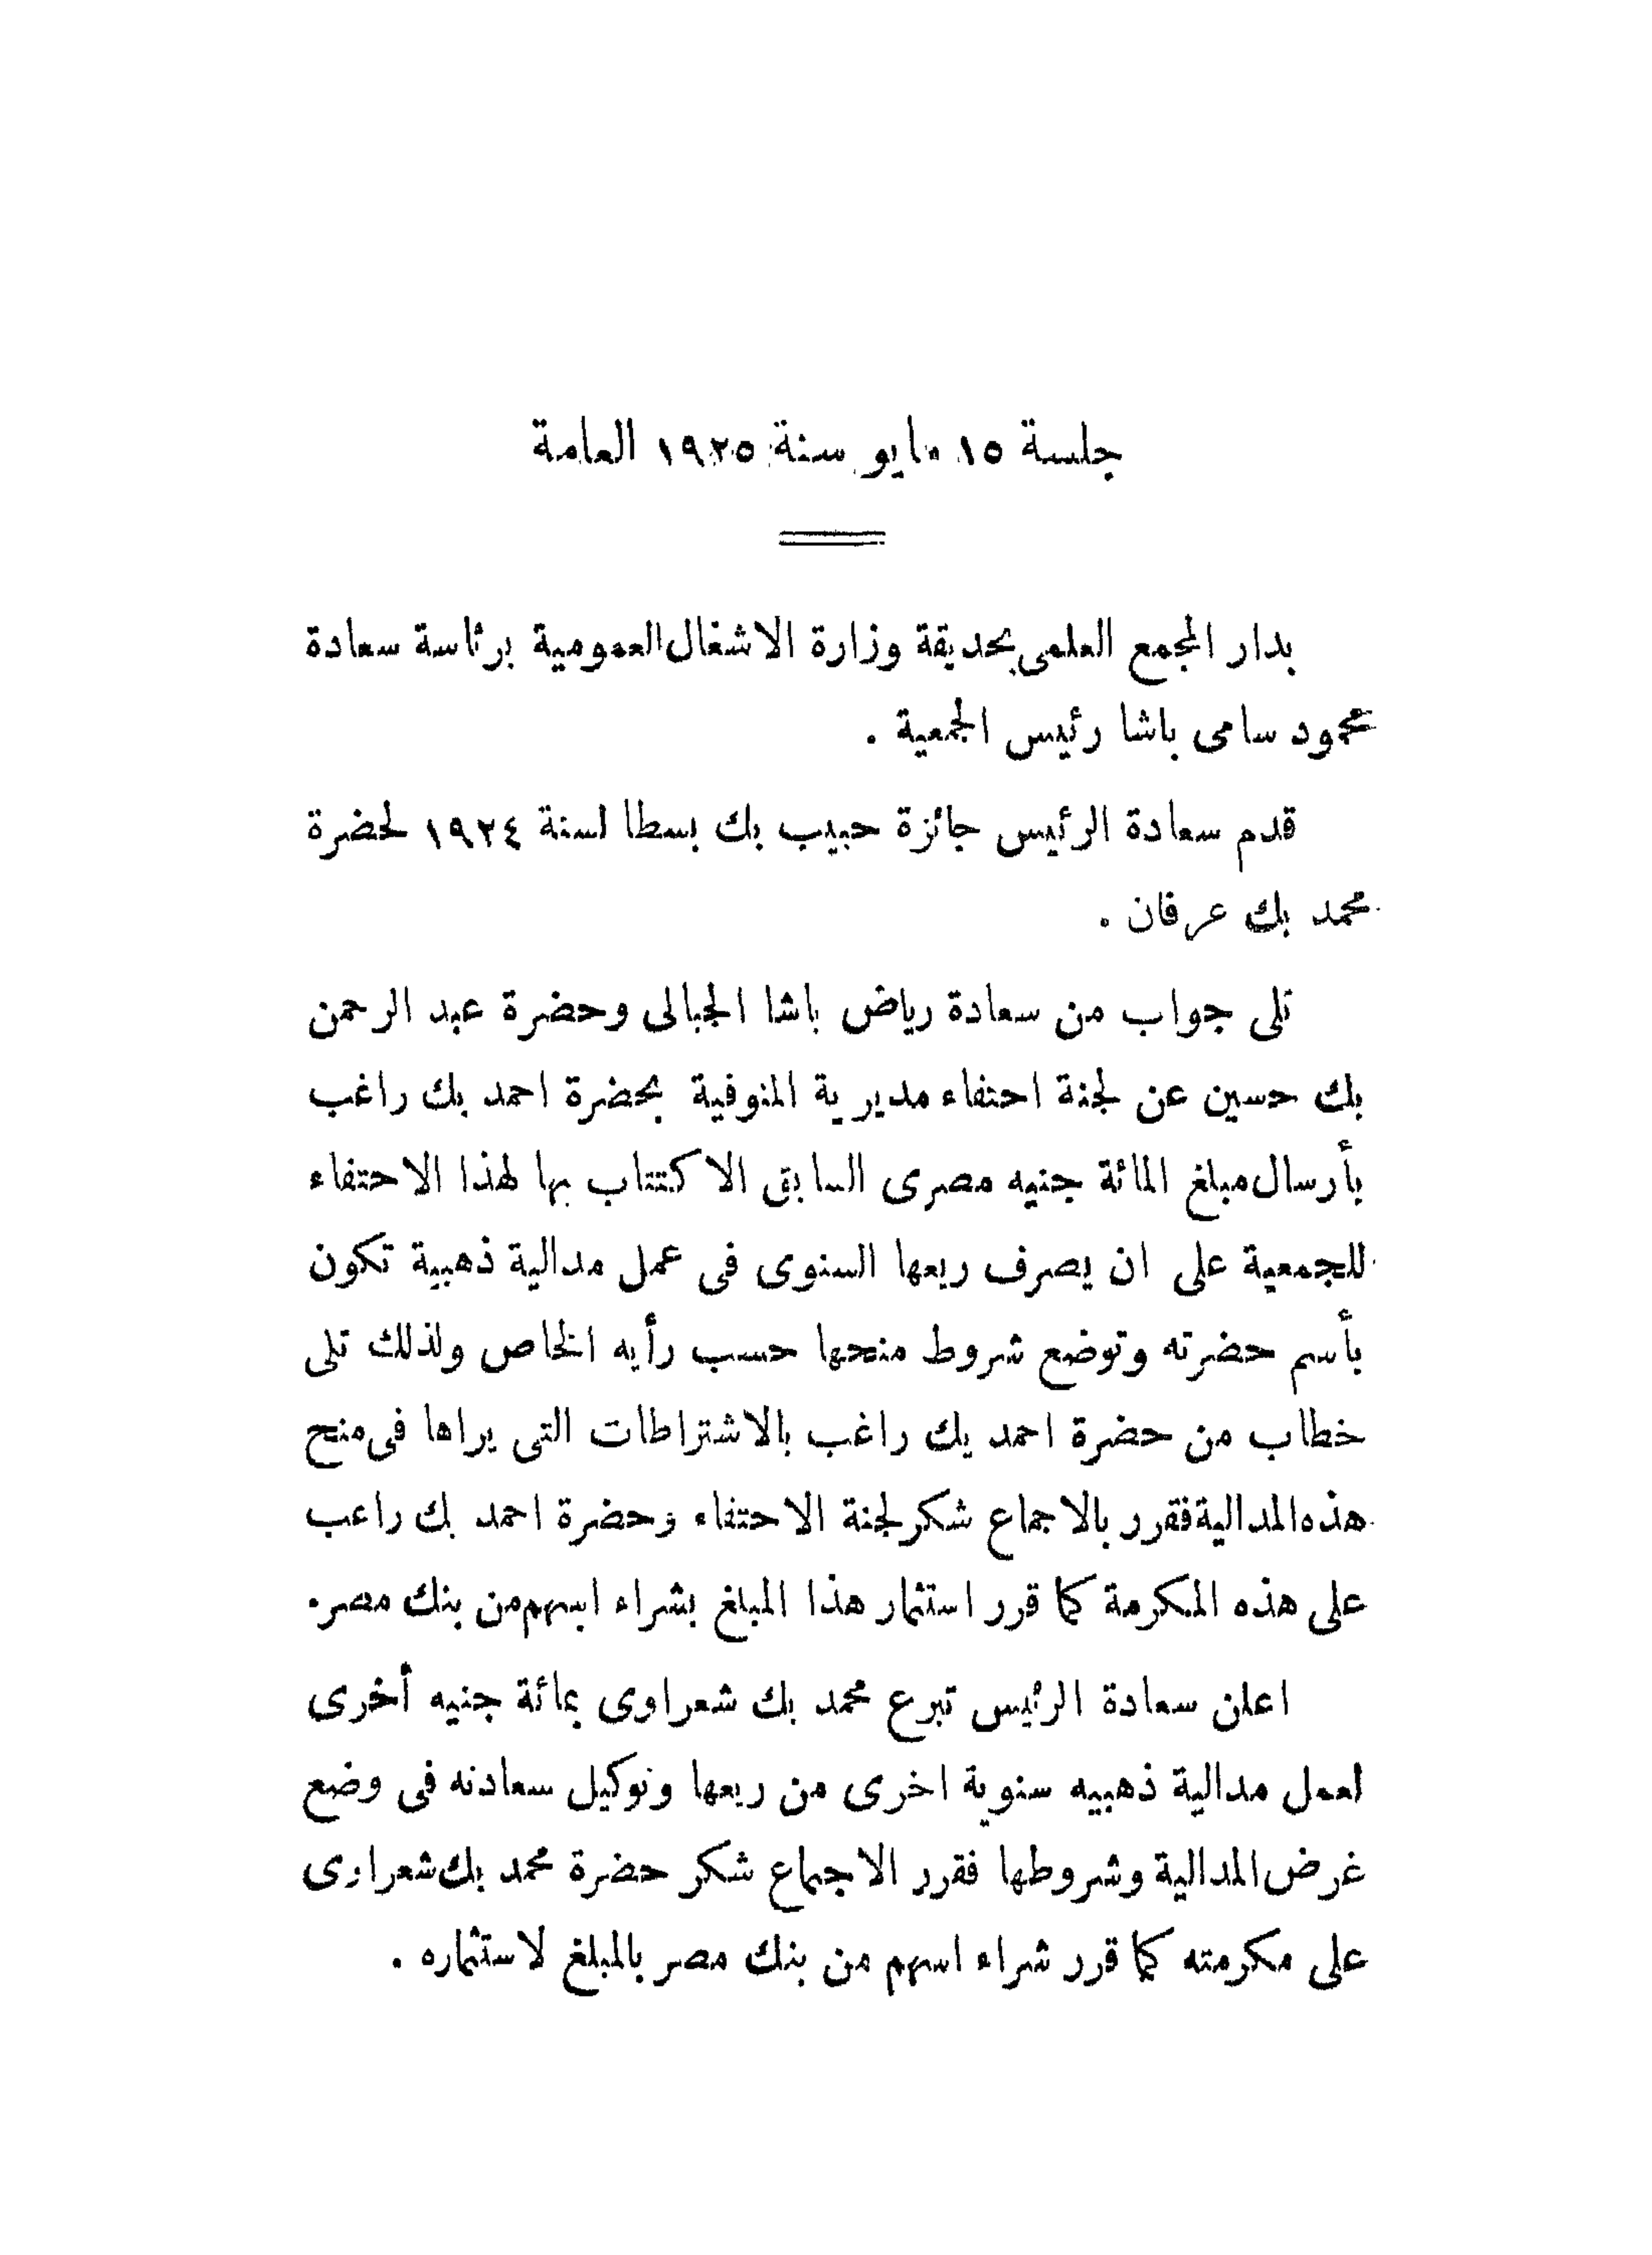 جلسة ١٥ مايو سنة ١٩٢٥ العامة
بدار المجمع العلمى بحديقة وزارة الاشغال العمومية برئاسة سعادة
محمود سامى باشا رئيس الجمعية .
قدم سعادة الرئيس جائزة حبيب بك بسطا لسنة ١٩٢٤ لحضرة
محمد بك عرفان .
تلى جواب من سعادة رياض باشا الجبالى وحضرة عبد الرحمن
بك حسين عن لجنة احتفاء مديرية المنوفية بحضرة احمد بك راغب
بأرسال مبلغ المائة جنيه مصرى السابق الاكتتاب بها لهذا الاحتفاء
للجمعية على ان يصرف ريعها السنوى فى عمل مدالية ذهبية تكون
بأسم حضرته وتوضع شروط منحها حسب رأيه الخاص ولذلك تلى
خطاب من حضرة احمد بك راغب بالاشتراطات التى يراها فى منح
هذه المدالية فقرر بالاجماع شكر لجنة الاحتفاء وحضرة احمد بك راغب
على هذه المكرمة كما قرر استثمار هذا المبلغ بشراء اسهم من بنك مصر.
اعلن سعادة الرئيس تبرع محمد بك شعراوى بمائة جنيه أخرى
لعمل مدالية ذهبيه سنوية اخرى من ريعها وتوكيل سعادته فى وضع
غرض المدالية وشروطها فقرر الاجماع شكر حضرة محمد بك شعراوى
على مكرمته كما قرر شراء اسهم من بنك مصر بالمبلغ لاستثماره .